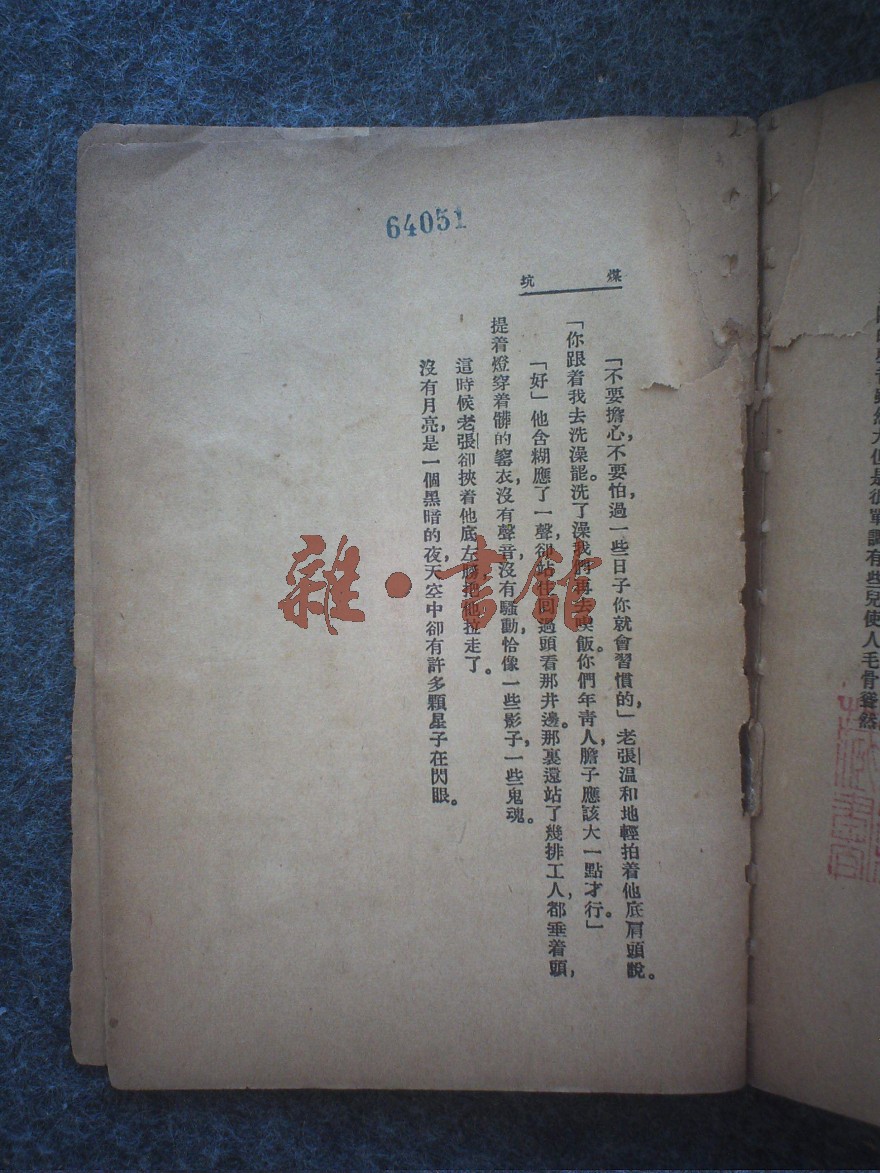 64051
煤坑
「不要擔心,不要怕,過一些日子你就會習慣的,」老張溫和地輕拍着他底肩頭說。
「你跟着我去洗澡罷。洗了澡我們再去喫飯。你們年青人,膽子應該大一點才行。」
「好」他含糊應了一聲,卻站住回過頭看那井邊。那裏還站了幾排工人,都垂着頭,
提着燈,穿着髒的窰衣,沒有聲音,沒有騷動,恰像一些影子,一些鬼魂。
這時候老張卻挾着他底左膀,把他拉走了。
沒有月亮,是一個黑暗的夜,天空中卻有許多顆星子在閃眼。
雜·書館
然大但是很單調,有些兒使人毛骨聳然。